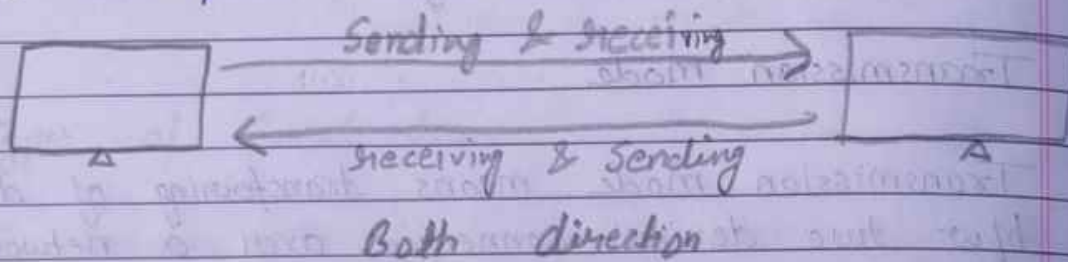 Sending & receiving
receiving & Sending
Both direction